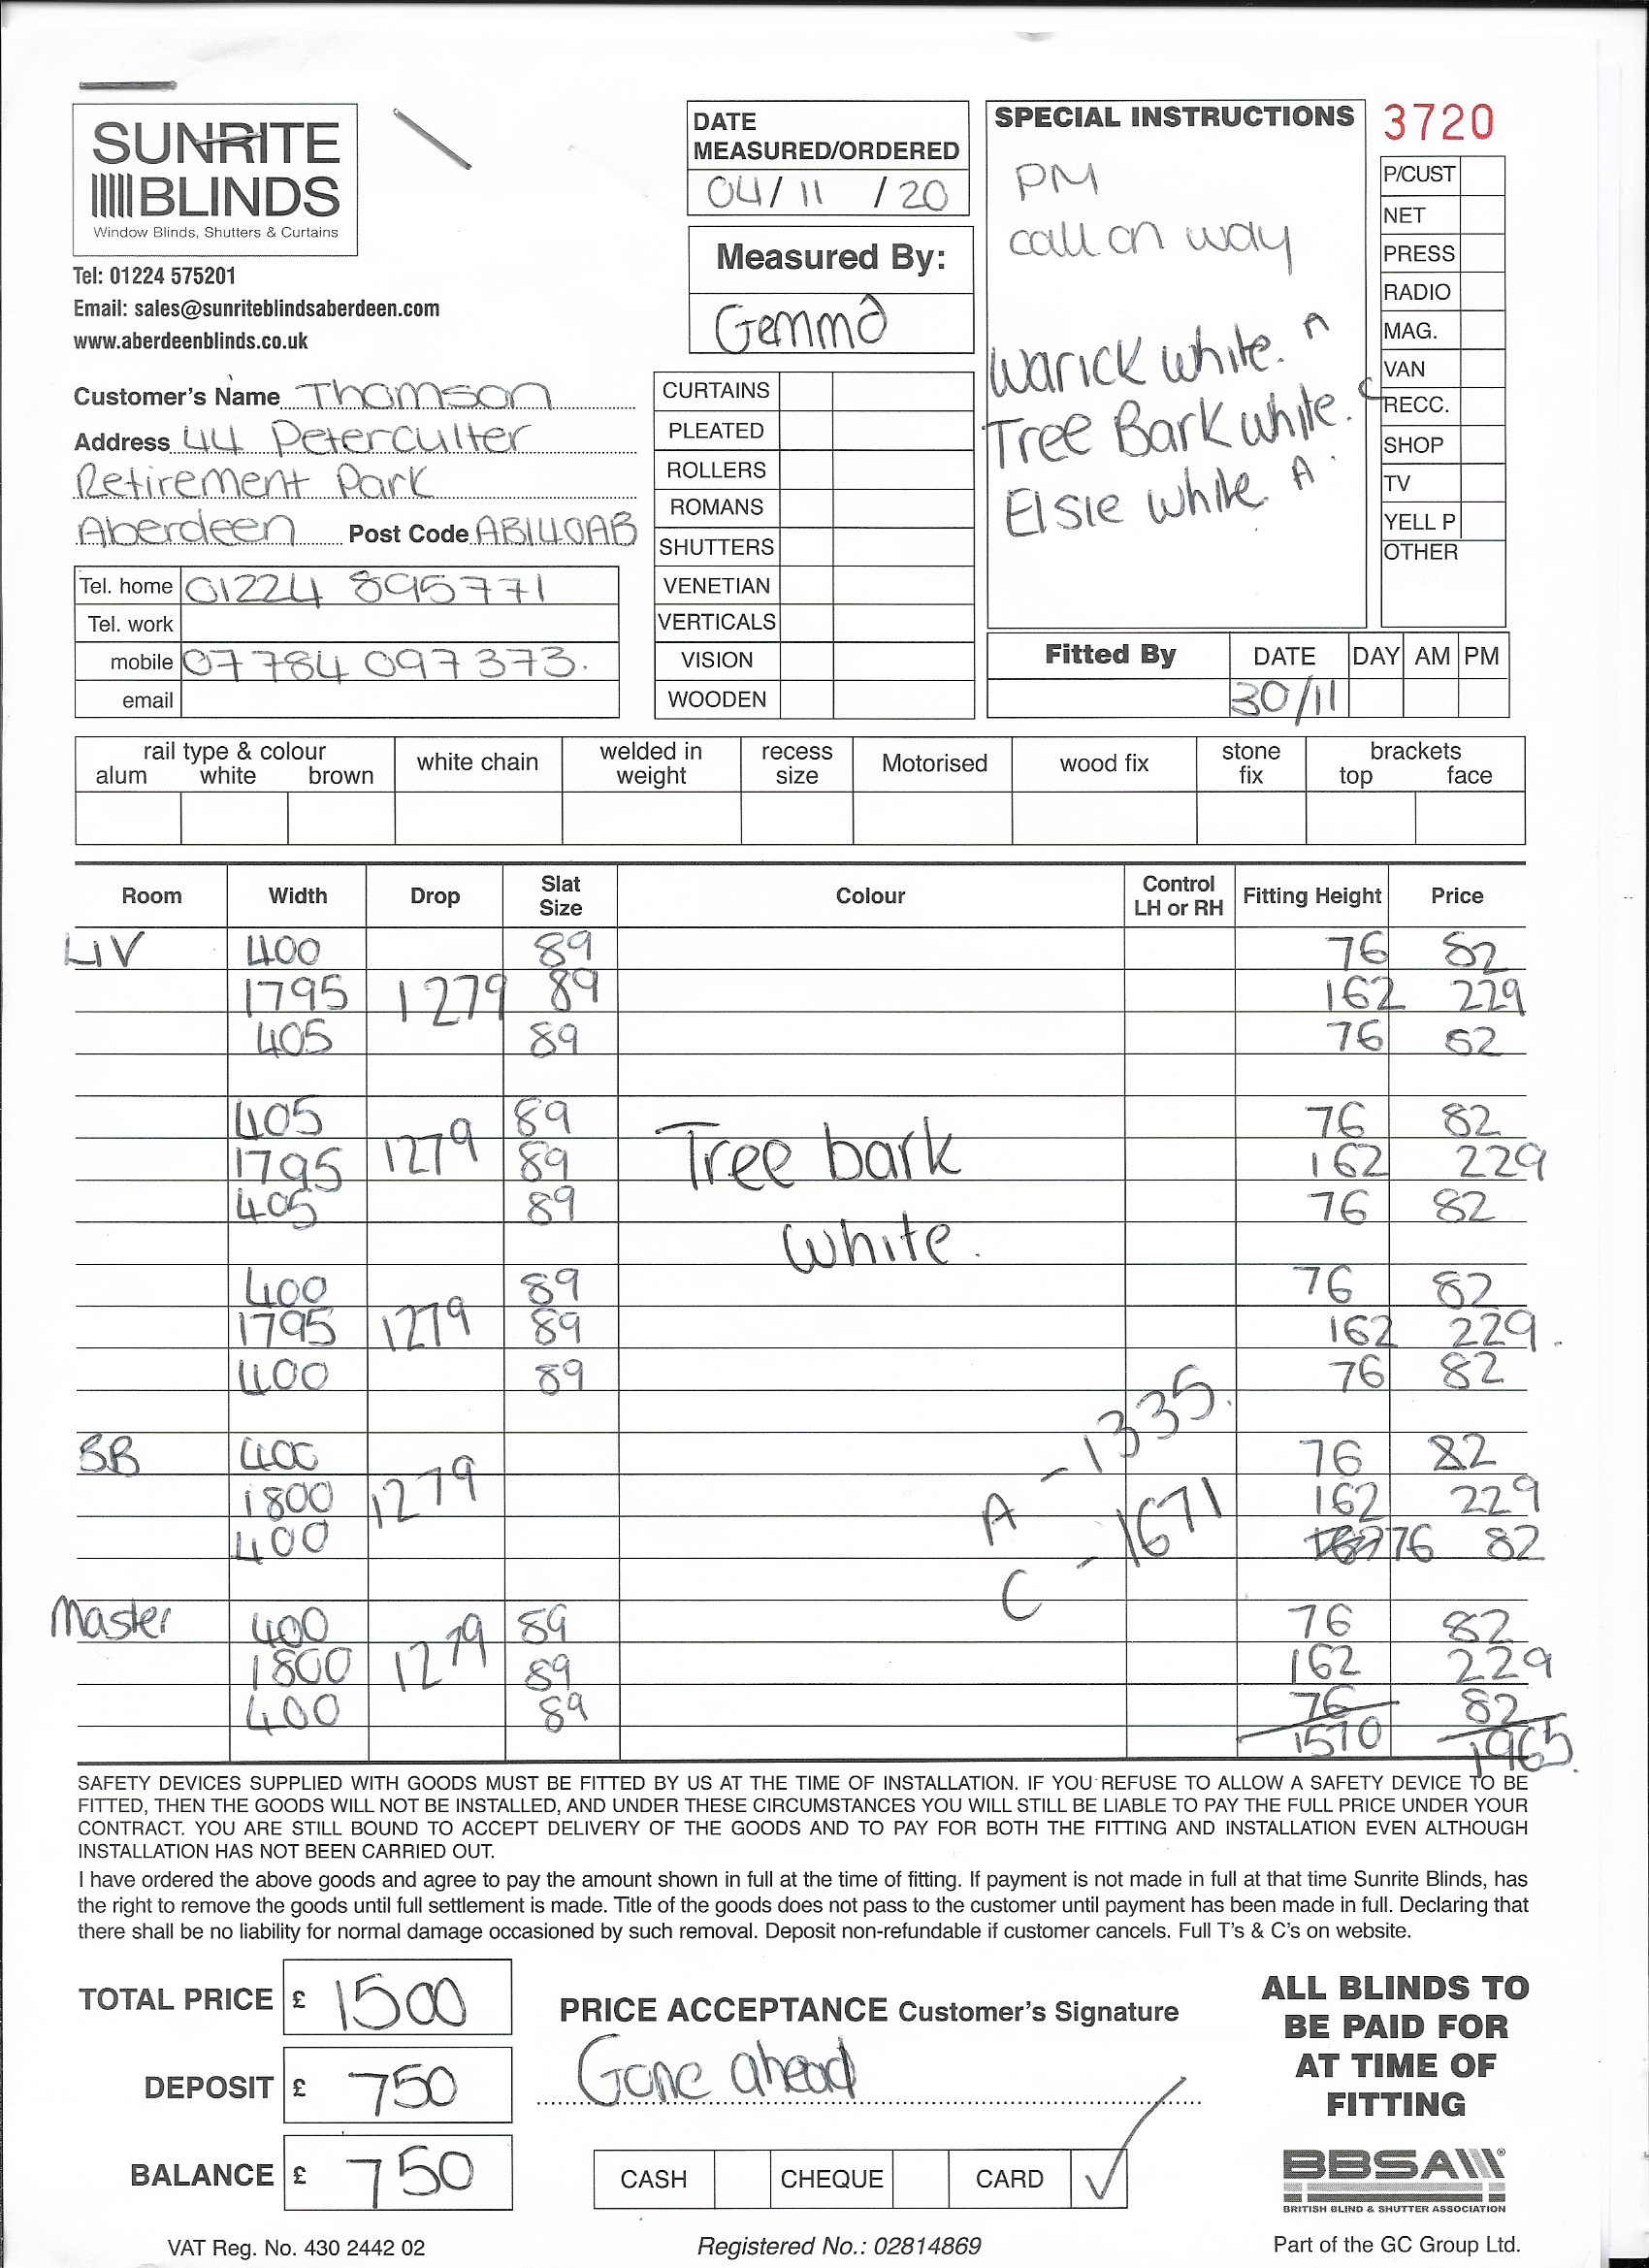 SUNRITE
BLINDS
Window Blinds, Shutters & Curtains
Tel: 01224 575201
Email: sales@sunriteblindsaberdeen.com
www.aberdeenblinds.co.uk
DATE
MEASURED/ORDERED
04/11/20
Measured By:
Gemma
SPECIAL INSTRUCTIONS
PM
call on way
Warick white. A
Tree Bark white. C
Elsie white A
3720
P/CUST
NET
PRESS
RADIO
MAG.
VAN
RECC.
SHOP
TV
YELL P
OTHER
Customer's Name Thomson
Address 44 Peterculter
Retirement Park
Aberdeen Post Code AB140AB
Tel. home 01224 895771
Tel. work
mobile 07784 097373.
email
CURTAINS
PLEATED
ROLLERS
ROMANS
SHUTTERS
VENETIAN
VERTICALS
VISION
WOODEN
Fitted By DATE DAY AM PM
30/11
rail type & colour white chain welded in weight recess size Motorised wood fix stone fix brackets
alum white brown top face
Room Width Drop Slat Size Colour Control LH or RH Fitting Height Price
LIV 400 89 76 82
1795 1279 89 162 229
405 89 76 82
405 89 76 82
1795 1279 89 Tree bark 162 229
405 89 76 82
white.
400 89 76 82
1795 1279 89 162 229.
400 89 76 82
A - 1335.
BB 400 76 82
1800 1279 162 229
400 76 82
C - 1671
Master 400 89 76 82
1800 1279 89 162 229
400 89 76 82
1570 1965.
SAFETY DEVICES SUPPLIED WITH GOODS MUST BE FITTED BY US AT THE TIME OF INSTALLATION. IF YOU REFUSE TO ALLOW A SAFETY DEVICE TO BE
FITTED, THEN THE GOODS WILL NOT BE INSTALLED, AND UNDER THESE CIRCUMSTANCES YOU WILL STILL BE LIABLE TO PAY THE FULL PRICE UNDER YOUR
CONTRACT. YOU ARE STILL BOUND TO ACCEPT DELIVERY OF THE GOODS AND TO PAY FOR BOTH THE FITTING AND INSTALLATION EVEN ALTHOUGH
INSTALLATION HAS NOT BEEN CARRIED OUT.
I have ordered the above goods and agree to pay the amount shown in full at the time of fitting. If payment is not made in full at that time Sunrite Blinds, has
the right to remove the goods until full settlement is made. Title of the goods does not pass to the customer until payment has been made in full. Declaring that
there shall be no liability for normal damage occasioned by such removal. Deposit non-refundable if customer cancels. Full T's & C's on website.
TOTAL PRICE £ 1500
DEPOSIT £ 750
BALANCE £ 750
PRICE ACCEPTANCE Customer's Signature
Gone ahead
CASH CHEQUE CARD ✓
ALL BLINDS TO
BE PAID FOR
AT TIME OF
FITTING
BBSA
BRITISH BLIND & SHUTTER ASSOCIATION
VAT Reg. No. 430 2442 02
Registered No.: 02814869
Part of the GC Group Ltd.